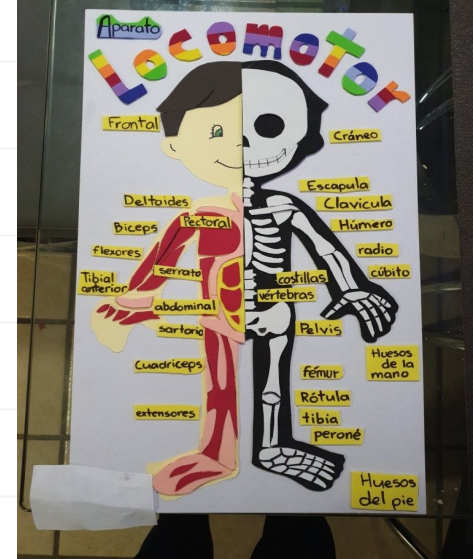 Aparato
Locomotor
Frontal
Deltoides
Pectoral
Biceps
flexores
serrato
Tibial
anterior
abdominal
sartorio
Cuadriceps
extensores
Cráneo
Escapula
Clavicula
Húmero
radio
cúbito
costillas
vértebras
Pelvis
Huesos
de la
mano
fémur
Rótula
tibia
peroné
Huesos
del pie